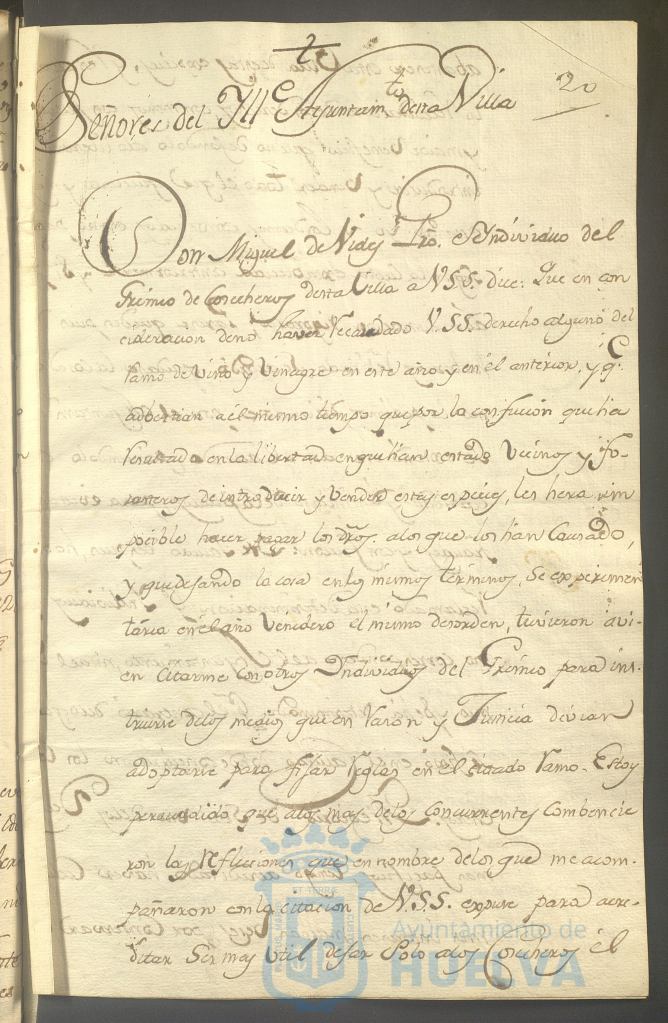 t
20
Señores del Ill.e Ayuntam.to desta Villa
Don Miguel de Vides Pro. è Yndividuo del
Gremio de Coccheros desta Villa a V.S.S. dice: Que en con
cideracion deno haver recaudado V.SS. derecho alguno del
ramo de vino y vinagre en este año y en el anterior, y q.e
adbertian aèl mismo tiempo que por la confucion que ha
resultado en la libertad enque han estado vecinos y fo-
rasteros de introducir y vender estas especies, les hera im
pocible hacer pagar los dros. alos que los han Causado,
y que dejando la cosa enlos mismos términos, se experimen
taria en el año venidero èl mismo desorden, tuvieron a vi-
en citarme con otros Yndividuos del Gremio para ins-
truirse delos medios que en razon y Justicia devian
adoptarse para fijar reglas en el citado ramo. Estoy
persuadido que alos mas delos concurrentes combencie
ron las reflicciones que en nombre delos que me acom-
pañaron con la citacion de V.S.S. expuse para acre-
ditar ser mas util dejar solo alos Coccheros èl
Ayuntamiento de
HUELVA